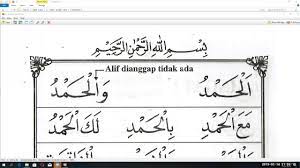 بِسْمِ اللهِ الرَّحْمٰنِ الرَّحِيْمِ
Alif dianggap tidak ada
اَلْحَمْدُ وَالْحَمْدُ
مَعَ الْحَمْدِ بِالْحَمْدِ لَكَ الْحَمْدُ